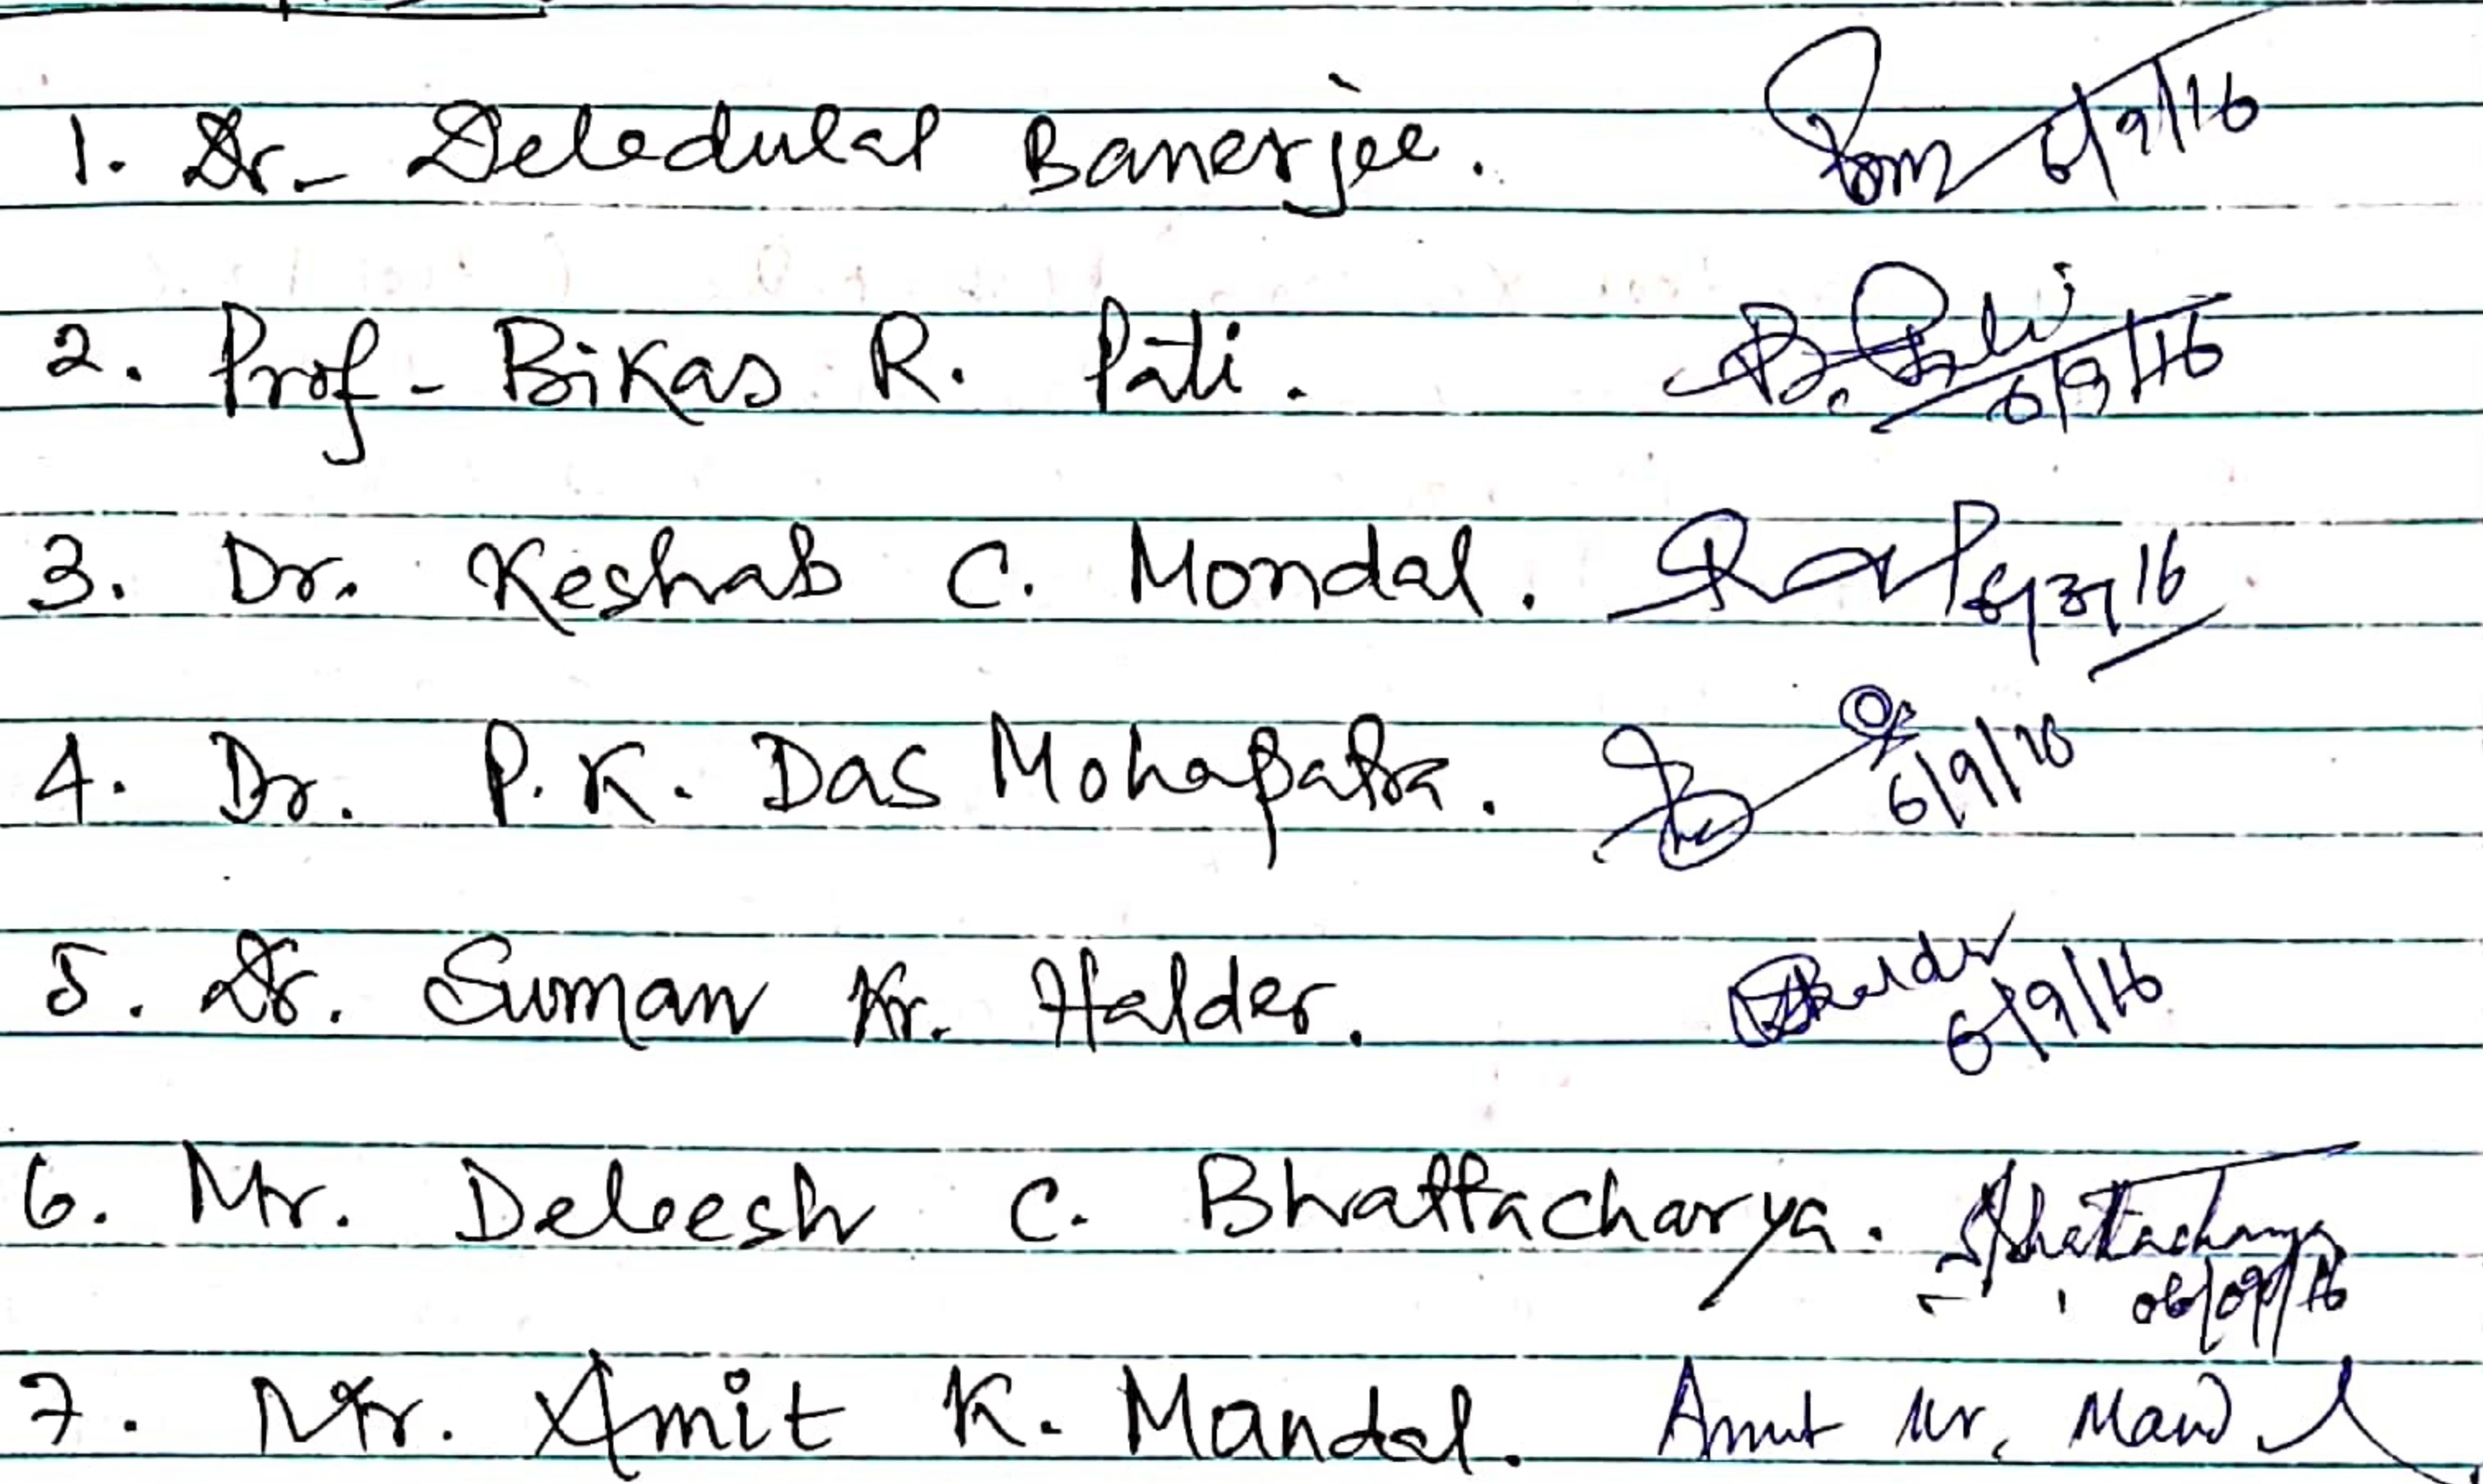 1. Dr. Debdulal Banerjee. 6/9/16
2. Prof. Bikas R. Pati. B. Pati 6/9/16
3. Dr. Keshab C. Mondal. 16
4. Dr. P. K. Das Mohapatra. 6/9/16
5. Dr. Suman Kr. Halder. Halder 6/9/16
6. Mr. Debesh C. Bhattacharya. Bhattacharya 06/09/16
7. Mr. Amit K. Mandal. Amit Kr. Mandal